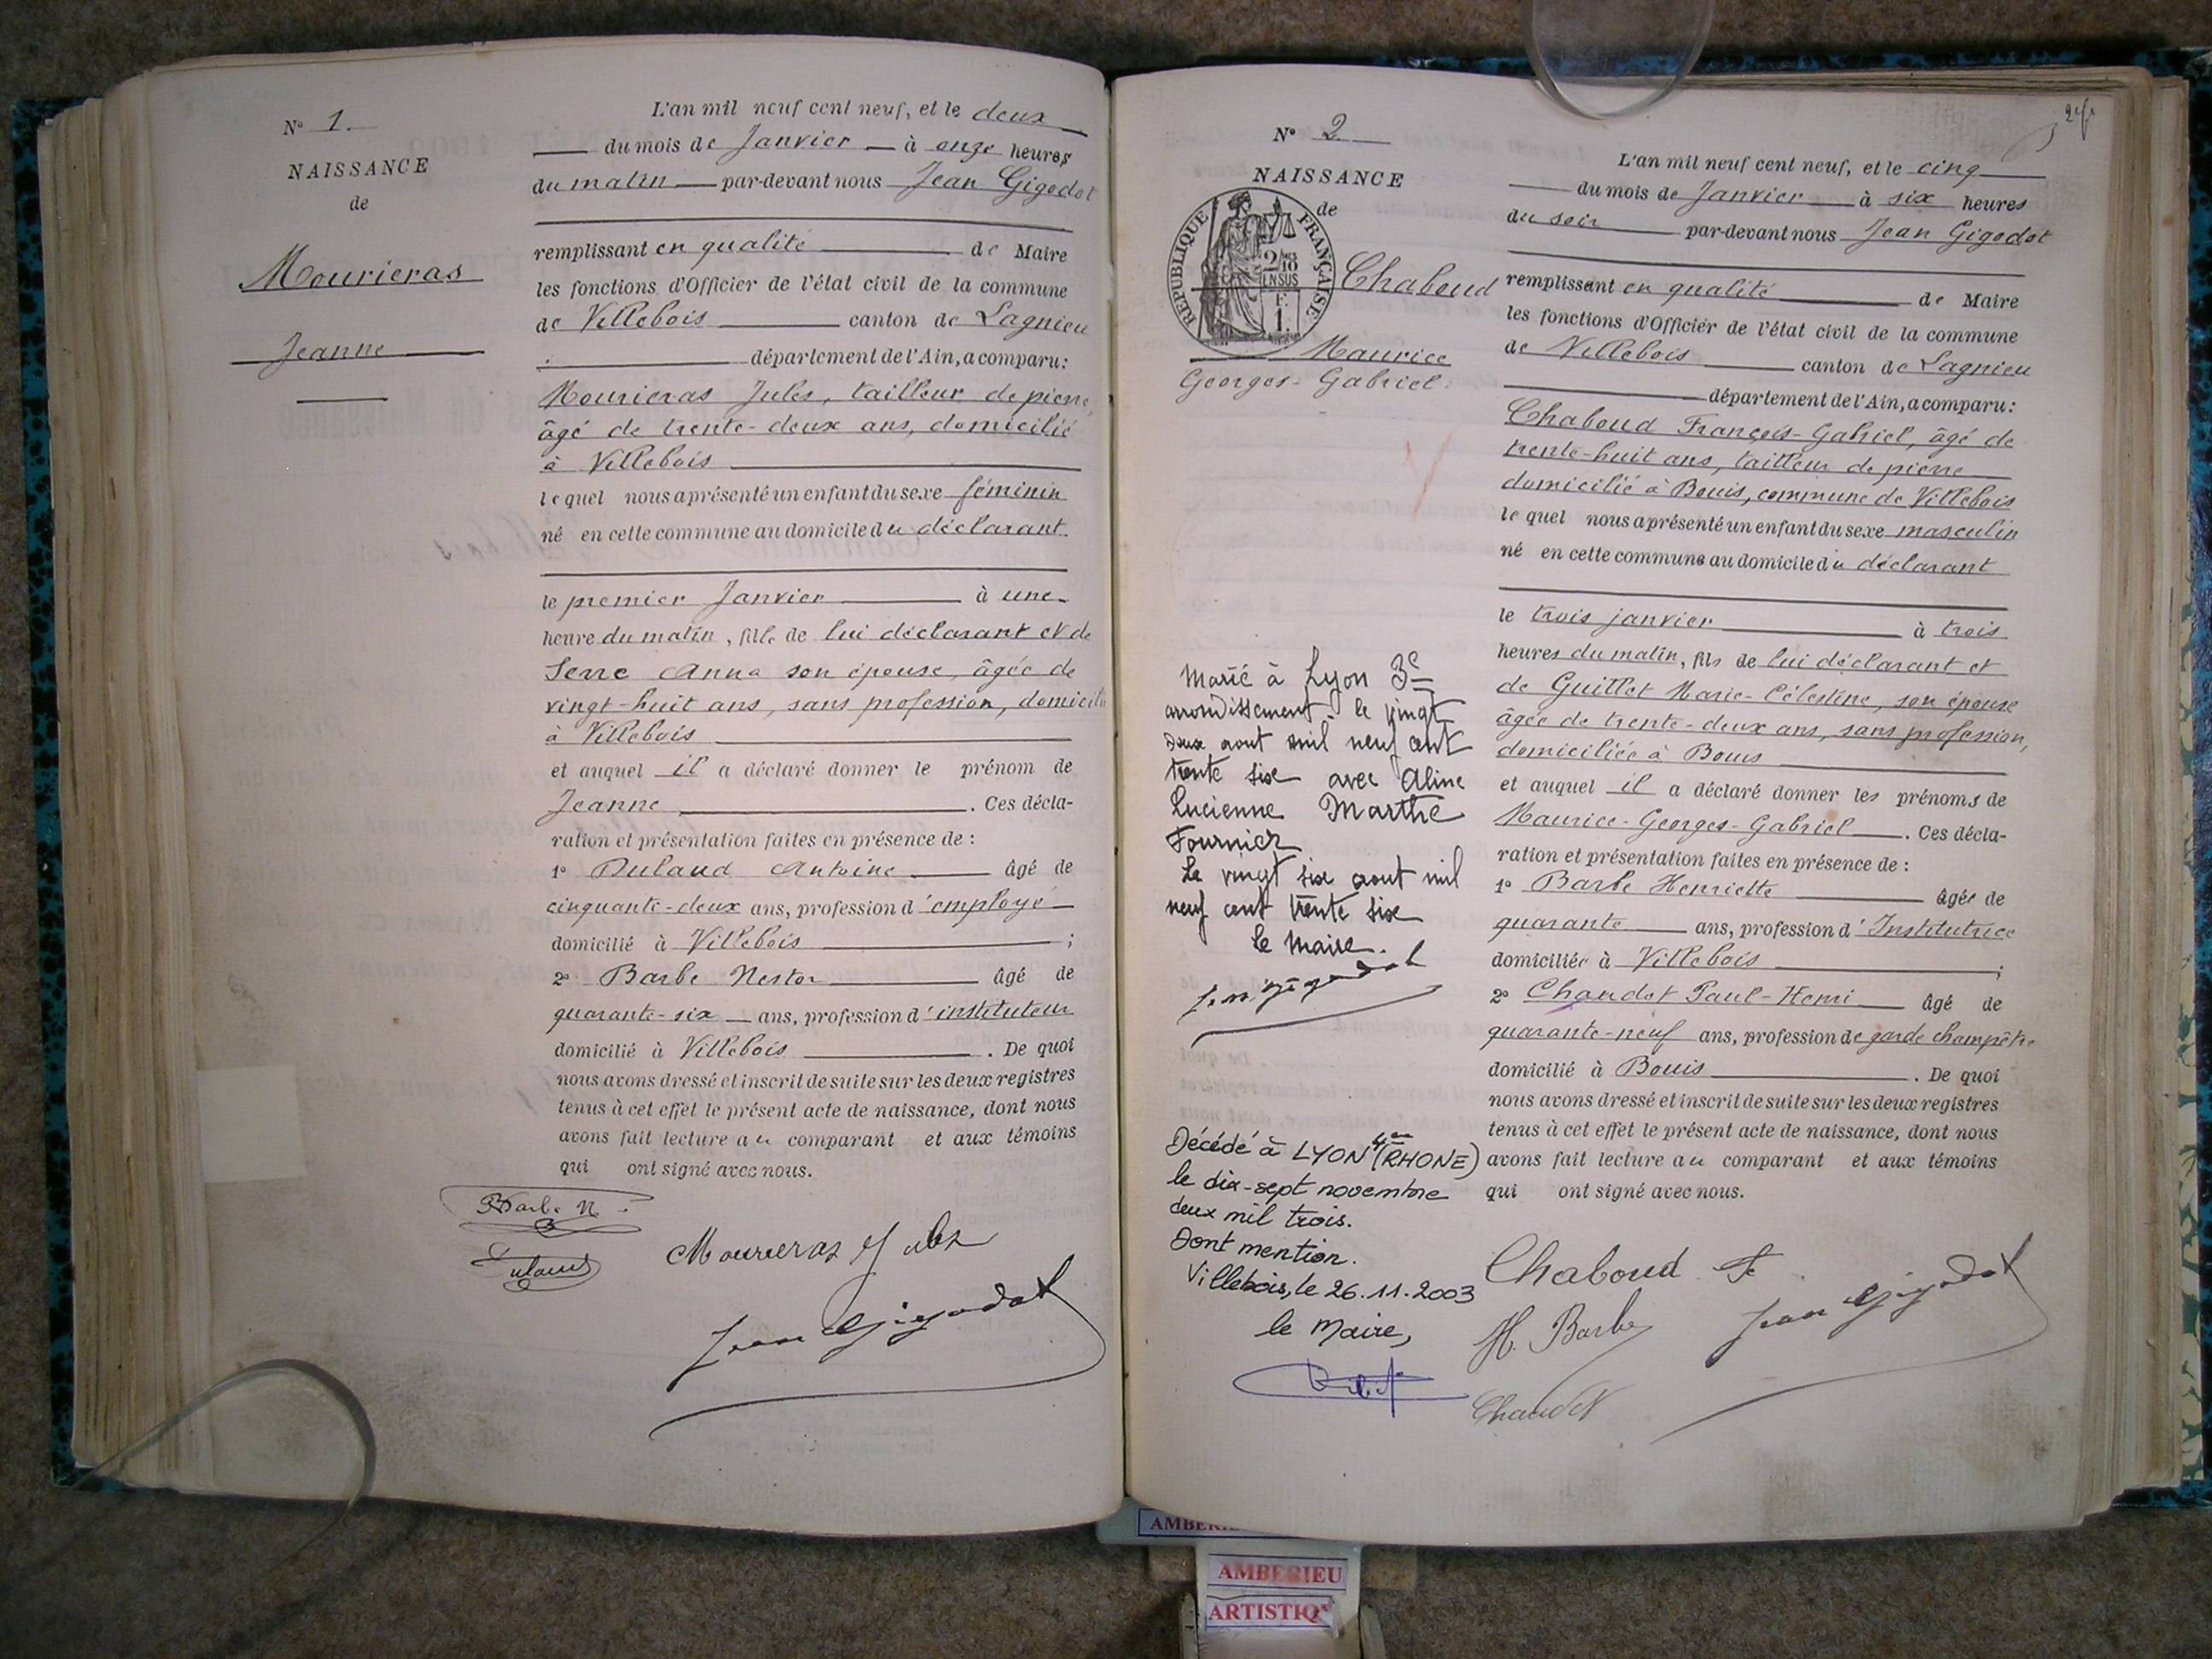 N° 1.
NAISSANCE
de
Mourieras
Jeanne
L'an mil neuf cent neuf, et le deux
du mois de Janvier à onze heures
du matin par-devant nous Jean Gigodot
remplissant en qualité de Maire
les fonctions d'Officier de l'état civil de la commune
de Villebois canton de Lagnieu
département de l'Ain, a comparu:
Mourieras Jules, tailleur de pierre,
âgé de trente-deux ans, domicilié
à Villebois
lequel nous a présenté un enfant du sexe féminin
né en cette commune au domicile du déclarant
le premier Janvier à une
heure du matin, fille de lui déclarant et de
Serre Anna son épouse, âgée de
vingt-huit ans, sans profession, domicilié
à Villebois
et auquel il a déclaré donner le prénom de
Jeanne. Ces décla-
ration et présentation faites en présence de :
1° Dulaud Antoine âgé de
cinquante-deux ans, profession d'employé
domicilié à Villebois ;
2° Barbe Nestor âgé de
quarante-six ans, profession d'instituteur
domicilié à Villebois. De quoi
nous avons dressé et inscrit de suite sur les deux registres
tenus à cet effet le présent acte de naissance, dont nous
avons fait lecture au comparant et aux témoins
qui ont signé avec nous.
Barbe N
Dulaud
Mourieras Jules
Jean Gigodot
N° 2
NAISSANCE
de
REPUBLIQUE FRANÇAISE
2/10 EN SUS
F. 1.
Chaboud
Maurice
Georges-Gabriel.
L'an mil neuf cent neuf, et le cinq
du mois de Janvier à six heures
du soir par-devant nous Jean Gigodot
remplissant en qualité de Maire
les fonctions d'Officier de l'état civil de la commune
de Villebois canton de Lagnieu
département de l'Ain, a comparu:
Chaboud François-Gabriel, âgé de
trente-huit ans, tailleur de pierre
domicilié à Bouis, commune de Villebois
lequel nous a présenté un enfant du sexe masculin
né en cette commune au domicile du déclarant
le trois janvier à trois
heures du matin, fils de lui déclarant et
de Guillet Marie-Célestine, son épouse
âgée de trente-deux ans, sans profession,
domiciliée à Bouis
et auquel il a déclaré donner les prénoms de
Maurice-Georges-Gabriel. Ces décla-
ration et présentation faites en présence de :
1° Barbe Henriette âgée de
quarante ans, profession d'Institutrice
domiciliée à Villebois ;
2° Chaudet Paul-Henri âgé de
quarante-neuf ans, profession de garde champêtre
domicilié à Bouis. De quoi
nous avons dressé et inscrit de suite sur les deux registres
tenus à cet effet le présent acte de naissance, dont nous
avons fait lecture au comparant et aux témoins
qui ont signé avec nous.
Marié à Lyon 3e
arrondissement le vingt
deux aout mil neuf cent
trente six avec Aline
Lucienne Marthe
Fournier
Le vingt six aout mil
neuf cent trente six
le Maire.
Jean Gigodot
Décédé à LYON 4e (RHONE)
le dix-sept novembre
deux mil trois.
Dont mention.
Villebois, le 26.11.2003
le Maire,
Chaboud F
H. Barbe
Jean Gigodot
Chaudet
AMBERIEU
ARTISTIQ